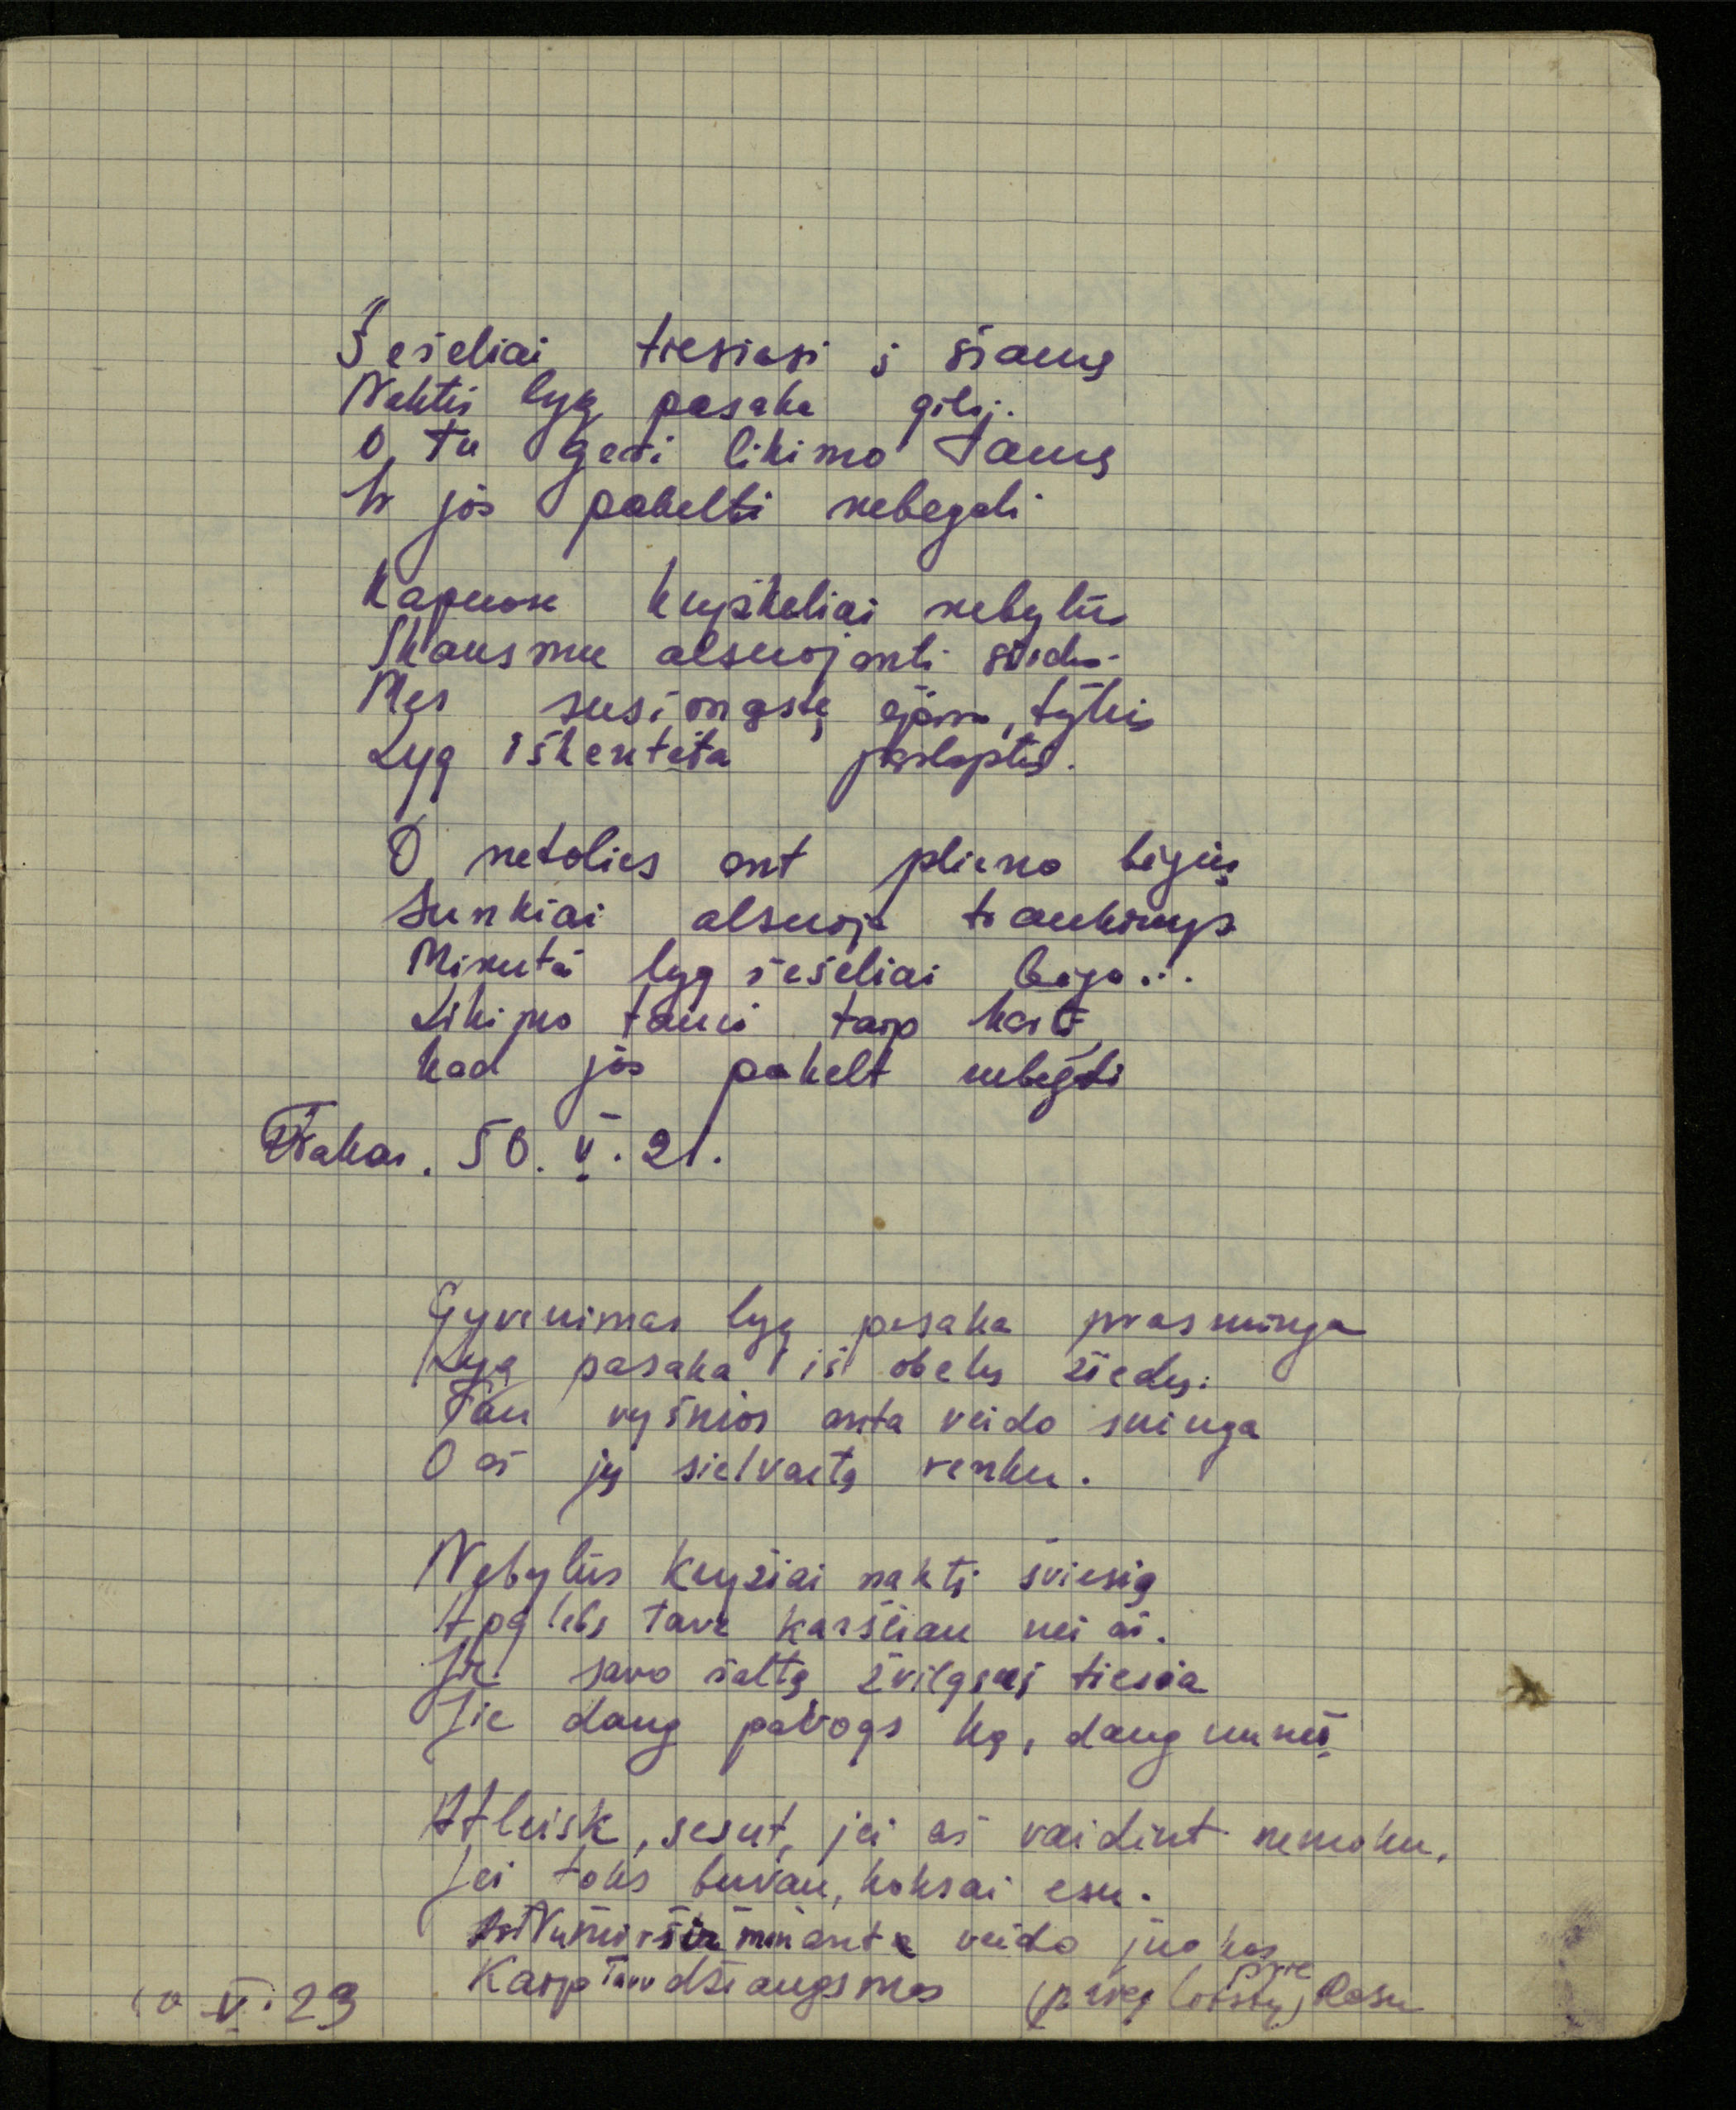 Šešėliai tiesiasi į šiaurę
Naktis lyg pasaka gili.
O Tu geri likimo taurę
Ir jos pakelti nebegali

Kapuose kryžkeliai nebylūs
Skausmu alsuojanti širdis.
Mes susimąstę ėjom, tylūs
Lyg iškentėta paslaptis.

O netolies ant plieno bėgių
Sunkiai alsuoja traukinys
Minutės lyg šešėliai bėga...
Likimo taurė tarp karti
kad jos pakelt nebegali
Trakas. 50. V. 21.

Gyvenimas lyg pasaka prasminga
Lyg pasaka iš obels žiedų.
Tau vyšnios anta veido sninga
O aš jų sielvartą renku.

Nebylūs kryžiai naktį šviesią
Apglėbs Tave karščiau nei aš.
Ir savo šaltą žvilgsnį tiesia
Jie daug pavogs ką, daug

Atleisk, sesut, jei aš vaidint nemoku,
Jei toks buvau, koksai esu.
man ant veido juokas
Kaip Tavo džiaugsmas Rasų
V. 23